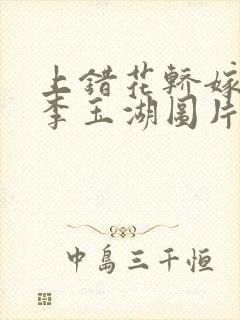 上錯花轎嫁
李玉湖圖片
中島三千恒